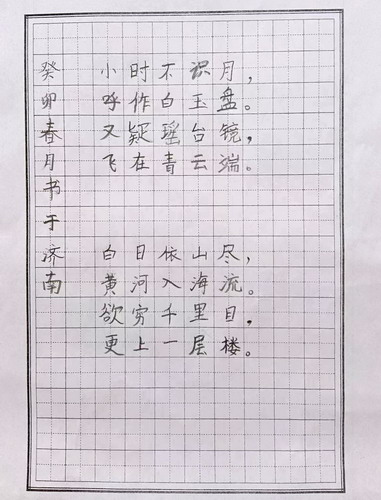 小时不识月，
呼作白玉盘。
又疑瑶台镜，
飞在青云端。
白日依山尽，
黄河入海流。
欲穷千里目，
更上一层楼。
癸卯春月书于济南